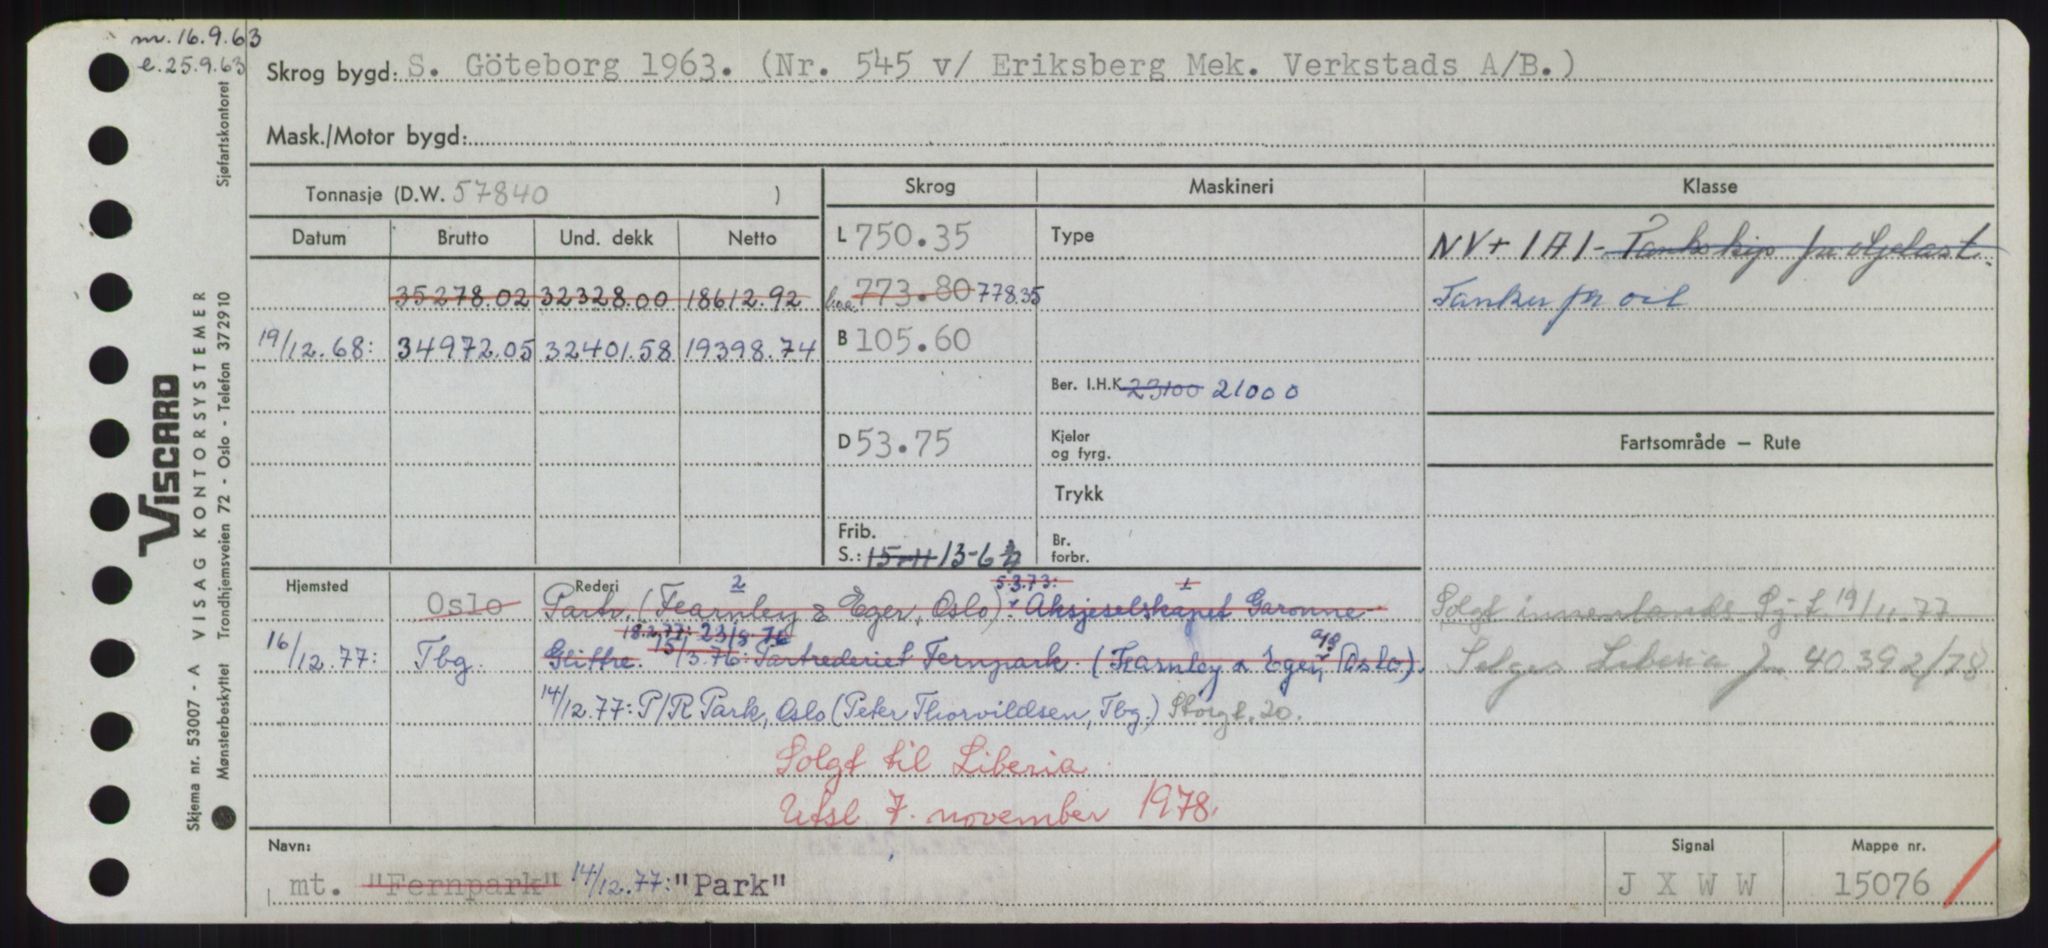 nr. 16.9.63
e. 25.9.63
Skrog bygd: S. Göteborg 1963. (Nr. 545 v/ Eriksberg Mek. Verkstads A/B.)
Mask./Motor bygd:
Tonnasje (D.W. 57840 )
Skrog Maskineri Klasse
Datum Brutto Und. dekk Netto
L 750.35 Type NV+ 1A1- Tankskip for oljelast.
35278.02 32328.00 18612.92
773.80 778.35 Tanker for oil
19/12.68: 34972.05 32401.58 19398.74
B 105.60
Ber. I.H.K. 23100 21000
D 53.75 Kjeler og fyrg.
Fartsområde — Rute
Trykk
Frib.
S.: 15-11 13-6 3/4
Br. forbr.
Hjemsted Rederi 2 5.3.73: 1
Oslo Partr. (Fearnley & Eger, Oslo). Aksjeselskapet Garonne
Solgt innenlands 19/11.77
18.2.77: 23/8.76
16/12.77: Tbg. Glittre. 15/3.76: Partrederiet Fernpark. (Fearnley & Eger, Oslo).
Selges Liberia 40 39 2/78
14/12.77: P/R Park, Oslo (Peter Thorvildsen, Tbg.) Storgt. 20.
Solgt til Liberia
Utsl 7. november 1978.
Navn: Signal Mappe nr.
mt. "Fernpark" 14/12.77: "Park" J X W W 15076
Sjøfartskontoret
VISCARD
VISAG KONTORSYSTEMER
Trondhjemsveien 72 - Oslo - Telefon 372910
Skjema nr. 53007 - A
Mønsterbeskyttet